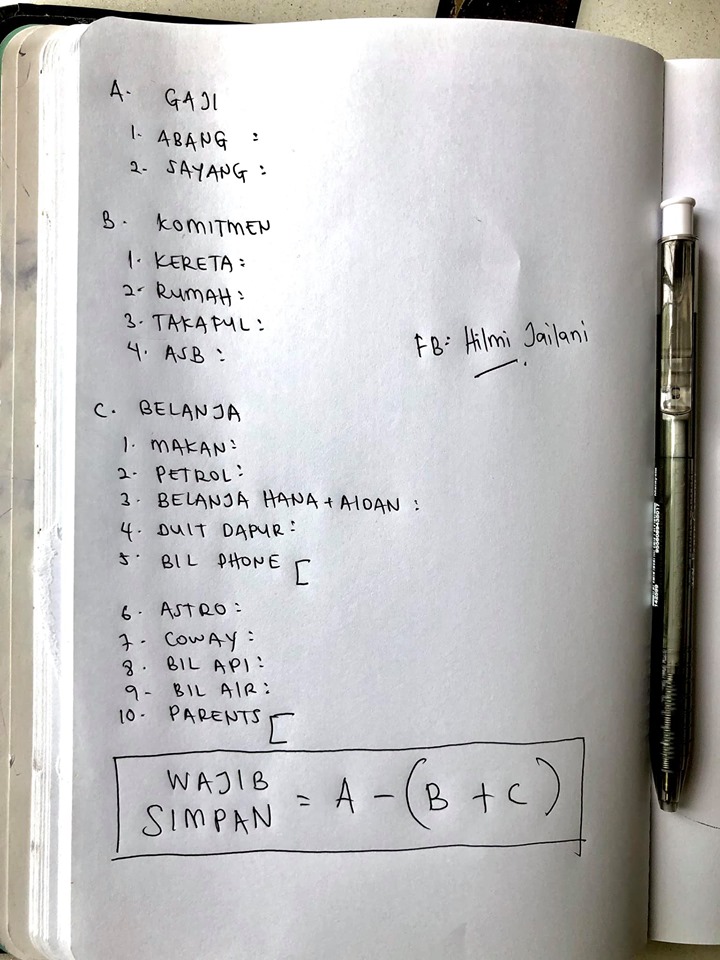 A. GAJI
1. ABANG :
2- SAYANG :
B. KOMITMEN
1. KERETA :
2- RUMAH :
3. TAKAFUL :
4. ASB :
FB: Hilmi Jailani
C. BELANJA
1. MAKAN :
2- PETROL :
3. BELANJA HANA + AIDAN :
4. DUIT DAPUR :
5. BIL PHONE [
6. ASTRO :
7- COWAY :
8. BIL API :
9- BIL AIR :
10- PARENTS [
WAJIB SIMPAN = A - (B + C)